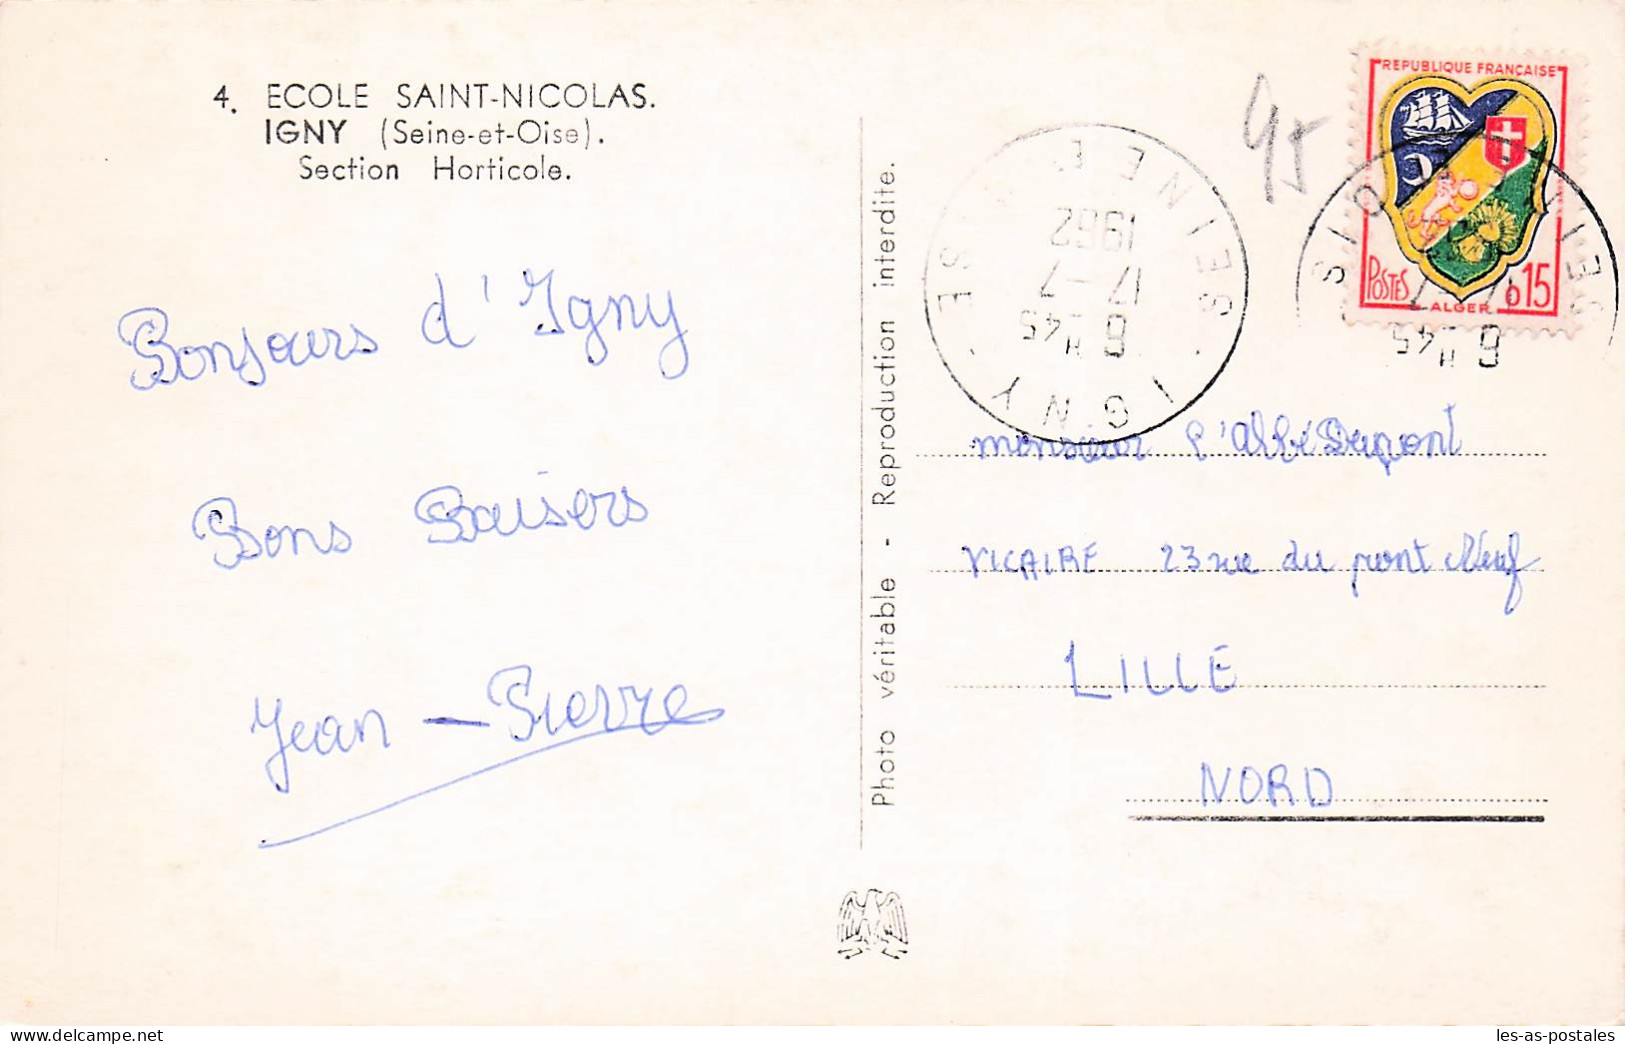 4. ECOLE SAINT-NICOLAS.
IGNY (Seine-et-Oise).
Section Horticole.
Bonjours d'Igny
Bons Baisers
Jean-Pierre
Photo véritable - Reproduction interdite.
95
IGNY
SEINE ET OISE
6 H 45
17-7
1962
REPUBLIQUE FRANÇAISE
POSTES
ALGER
0,15
6 H 45
17-7
monsieur l'Abbé Dupont
VICAIRE 23 rue du pont Neuf
LILLE
NORD
www.delcampe.net
les-as-postales